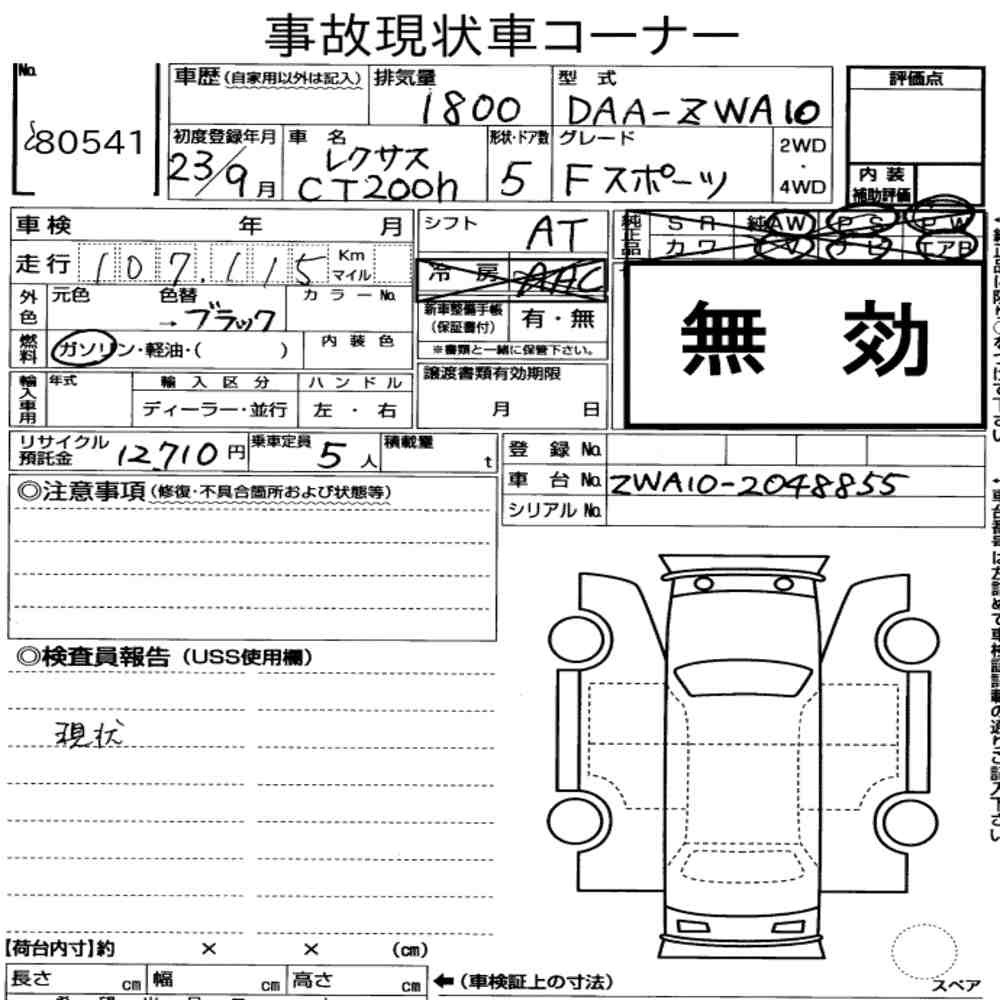 事故現状車コーナー
No.
80541
車歴(自家用以外は記入)
排気量
1800
型式
DAA-ZWA10
評価点
初度登録年月
23/9月
車名
レクサス
CT200h
形状・ドア数
5
グレード
Fスポーツ
2WD
・
4WD
内装
補助評価
車検 年 月
シフト
AT
純正品
SR 純AW PS PW
カワ TV ナビ エアB
走行
107,115
Km
マイル
冷房 AAC
外色
元色 色替
→ブラック
カラーNo.
新車整備手帳
(保証書付)
有・無
※書類と一緒に保管下さい。
無効
燃料
ガソリン・軽油・( )
内装色
輸入車用
年式
輸入区分
ディーラー・並行
ハンドル
左・右
譲渡書類有効期限
月 日
リサイクル
預託金
12,710円
乗車定員
5人
積載量
t
登録No.
車台No.
ZWA10-2048855
シリアルNo.
◎注意事項(修復・不具合箇所および状態等)
◎検査員報告(USS使用欄)
現状
【荷台内寸】約 × × (cm)
長さ cm 幅 cm 高さ cm
←(車検証上の寸法)
スペア